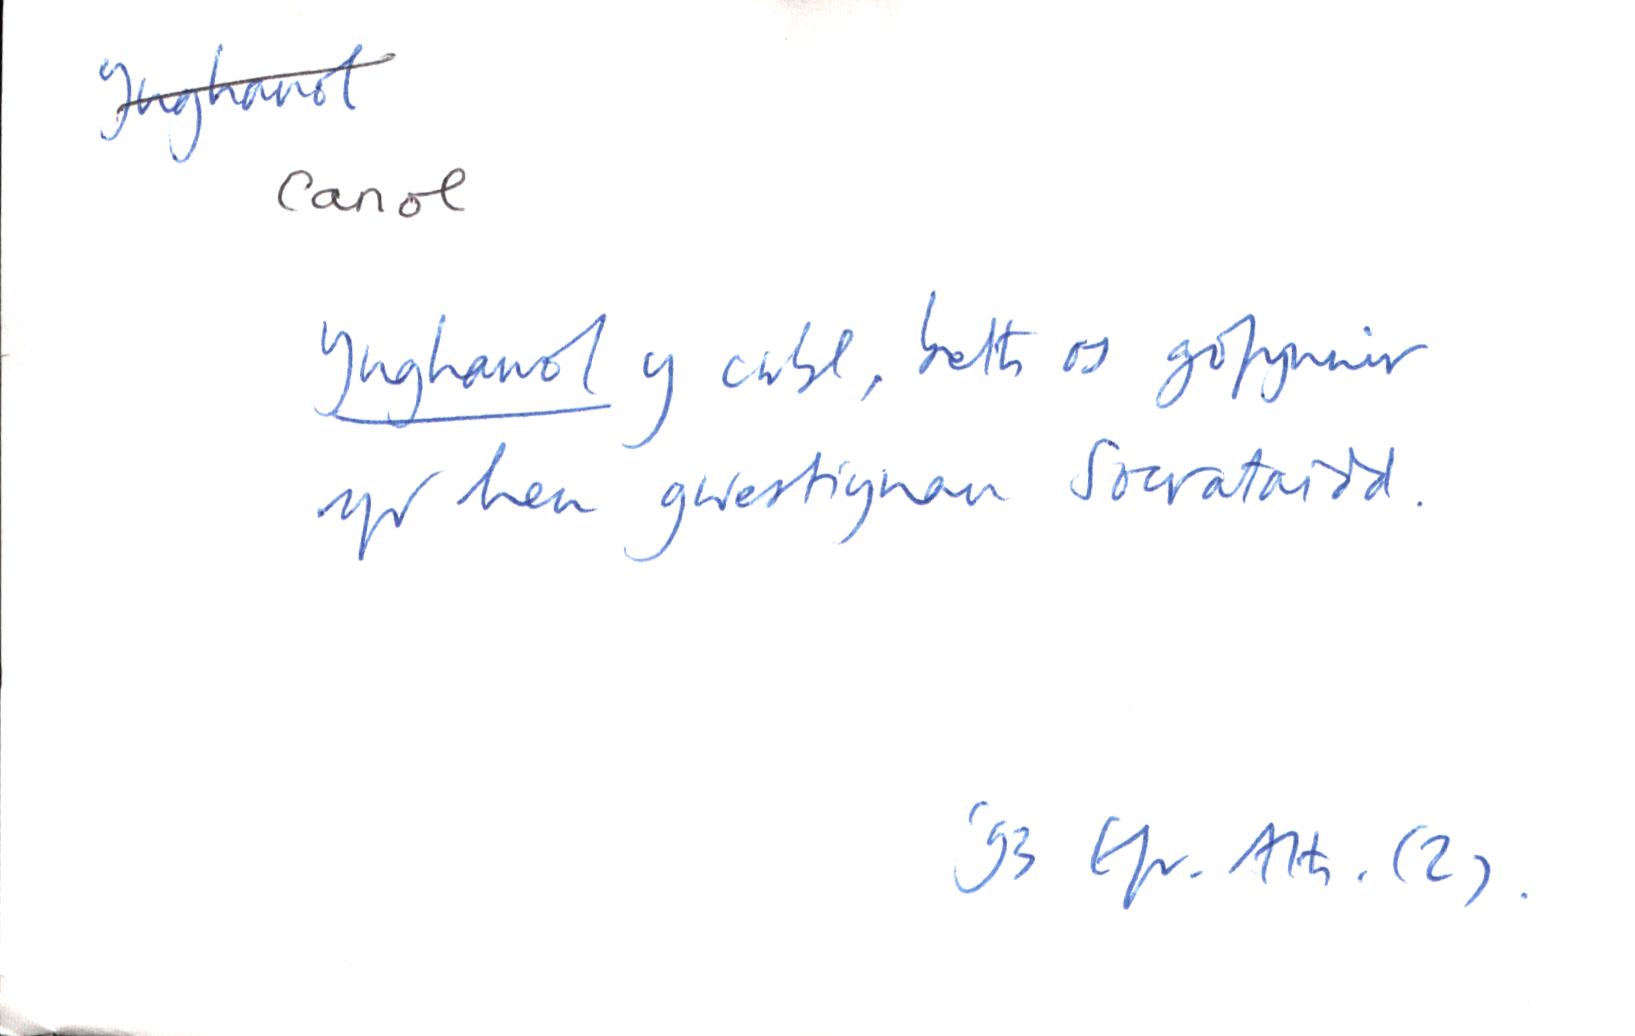 Ynghanol
Canol
Ynghanol y cwbl, beth os gofynnir
yr hen gwestiynau Socrataidd.
'93 Efr. Ath. (2).